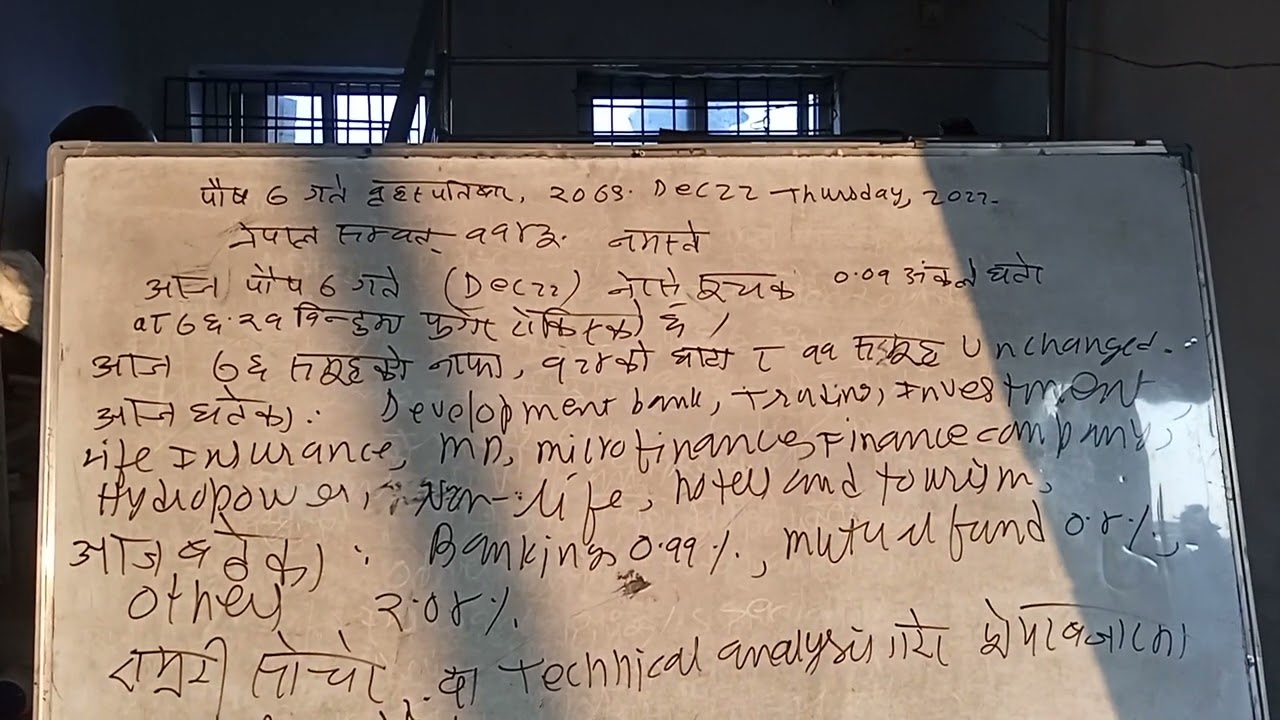 पौष 6 गते वृहस्पतिवार, 2069. Dec 22 Thursday, 2022.
नेपाल सम्वत् ११४३. नमस्ते
आज पौष 6 गते (Dec 22) नेप्से सूचक 0.09 अंकले घटी
विन्दुमा पुगेर रोकिएको छ ।
आज समूहको नाफा, १२४को घाटा र ११ समूह Unchanged.
आज घटेका: Development bank, Trading, Investment,
Life Insurance, microfinance, Finance company,
Hydropower, Non-Life, hotels and tourism,
आज बढेका: Banking 0.११%, mutual fund 0.८%,
others २.0४%.
राम्ररी सोचेर, वा Technical analysis गरी शेयर बजारमा